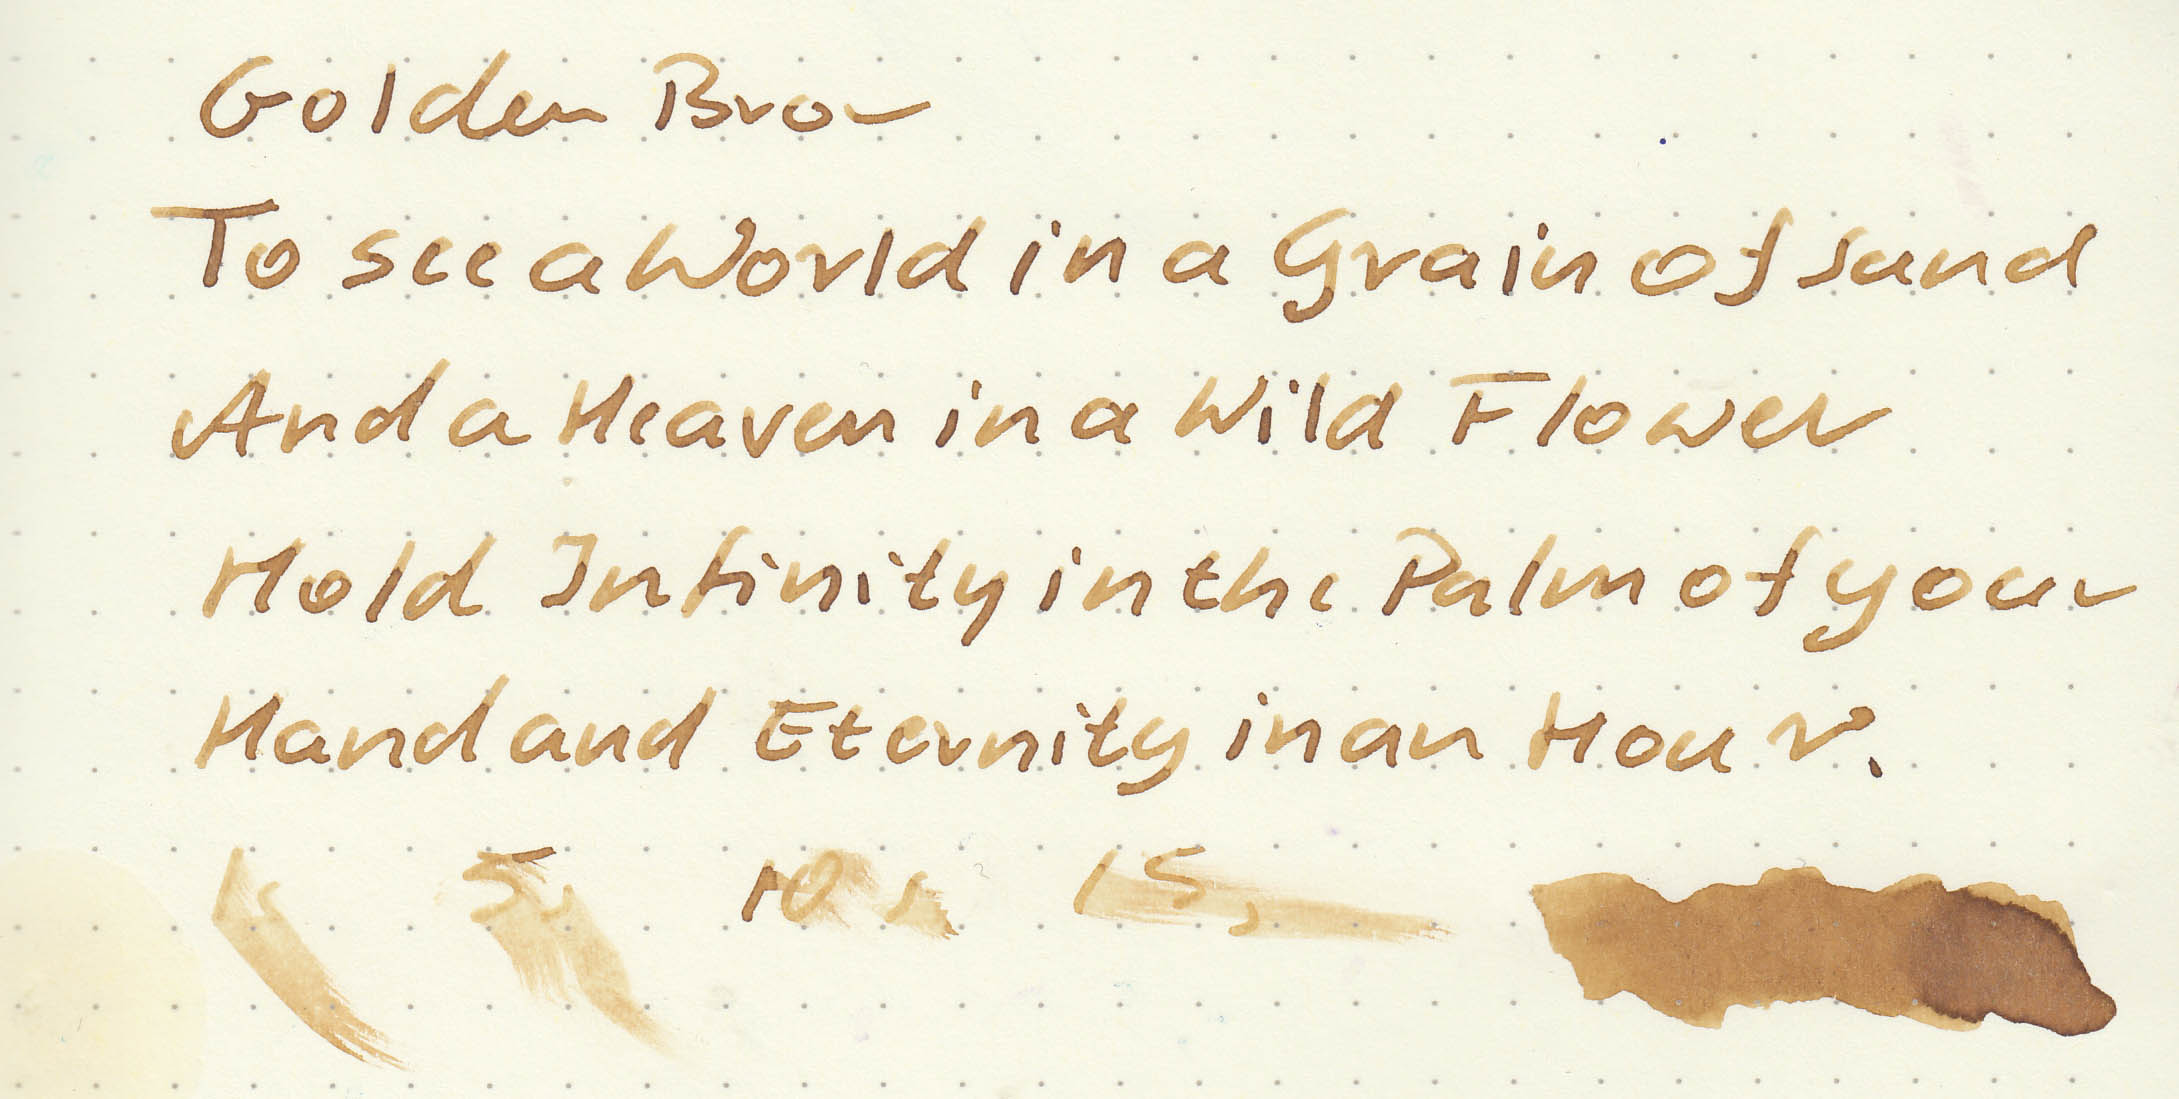 Golden Bro
To see a World in a Grain of Sand
And a Heaven in a Wild Flower
Hold Infinity in the Palm of your
Hand and Eternity in an Hour.
1s 5s 10s 15s